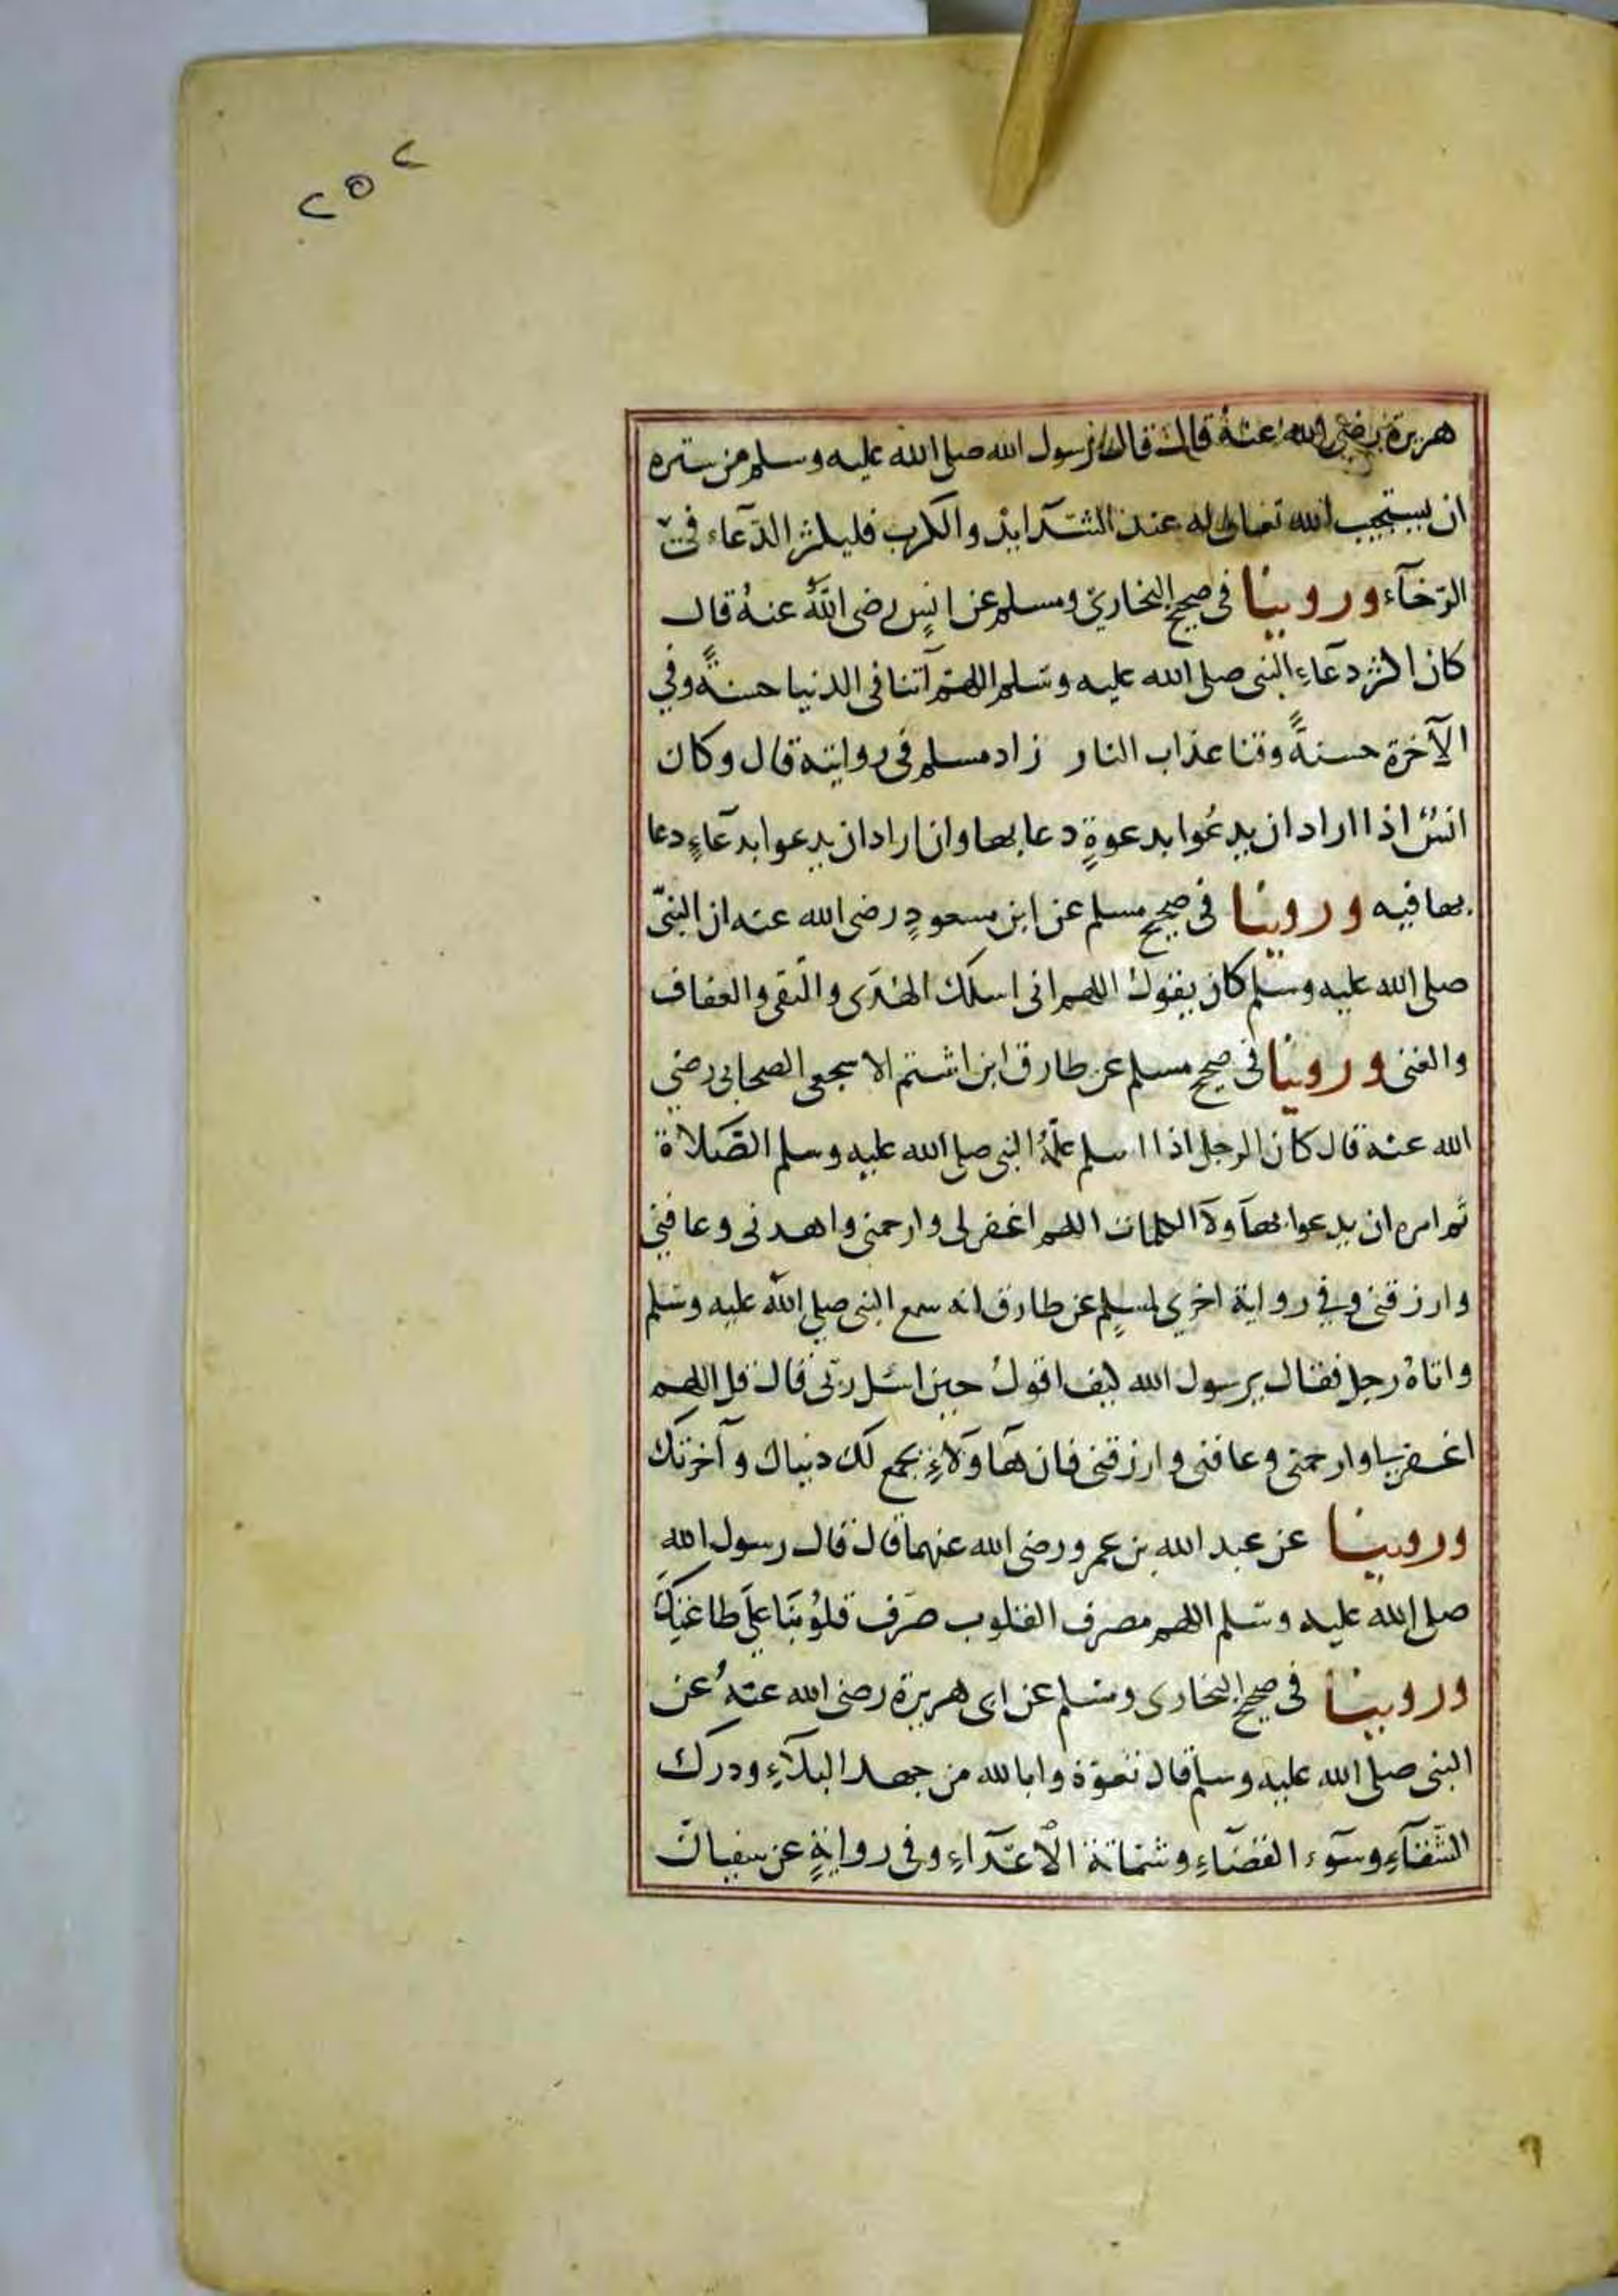 ٢٥٢
هريرة رضي الله عنهُ قال قال رسول الله صلى الله عليه وسلم من ستره
ان يستجيب الله تعالى له عند الشدآيد والكرب فليكثر الدّعآء في
الرّخآء وروينا في صحيح البخاري ومسلم عن انسٍ رضى اللّه عنهُ قال
كان اكثر دعآءِ النبي صلى الله عليه وسَلم اللهم آتنا في الدنيا حسنةً وفي
الآخرة حسنةً وقنا عذاب النار زاد مسلم في روايته قال وكان
انسٌ اذا اراد ان يدعُوا بدعوةٍ دعا بها وان اراد ان يدعوا بدعآءٍ دعا
بها فيه وروينا في صحيح مسلم عن ابن مسعودٍ رضى الله عنه ان النبيّ
صلى الله عليه وسلم كان يقول اللهم اني اسلك الهدَى والتقى والعفاف
والغنى وروينا في صحيح مسلم عن طارق ابن اشتم الاسجعى الصحابي رضي
الله عنه قال كان الرجل اذا اسلم علّمهُ النبي صلى الله عليه وسلم الصّلاة
ثم امره ان يدعوا بهآولآ الكلمات اللهم اغفر لى وارحمنى واهدنى وعافيني
وارزقنى وفي رواية اخري لمسلمٍ عن طارق انه سمع النبى صلى اللّه عليه وسَلم
واتاهُ رجل فقال يرسول الله كيف اقولُ حين اسئل ربّى قال قل اللهم
اغفرلي وارحمنى وعافنى وارزقنى فان هآوَلآءِ يجمع لك دنياك وآخرتك
وروينا عن عبد الله بن عمرو رضى الله عنهما قال قال رسول اللهِ
صلى الله عليه وسَلم اللهم مصرف القلوب صرّف قلوُبنَا علَى طاعتِكَ
وروينا في صحيح البخارى ومسلم عن ابى هريرة رضى الله عنهُ عن
النبى صلى الله عليه وسلم قال تعوّذوا بالله من جهد البلآءِ ودرك
الشّقآءِ وسَوء القضآءِ وشمَاتة الأعدَآءِ وفى روايةٍ عن سفيان